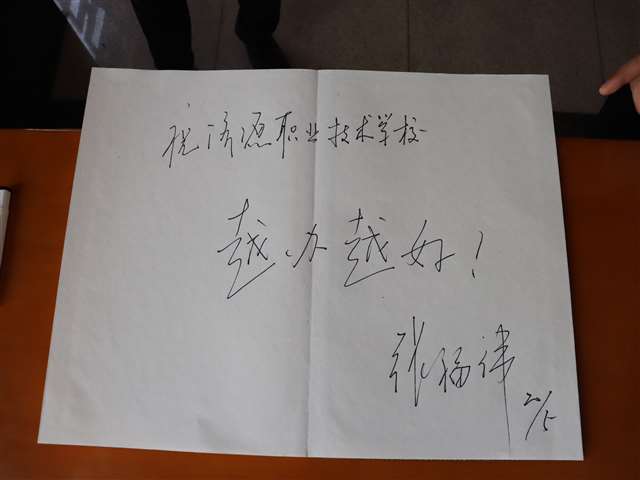 祝济源职业技术学校
越办越好!
张福伟
20/5